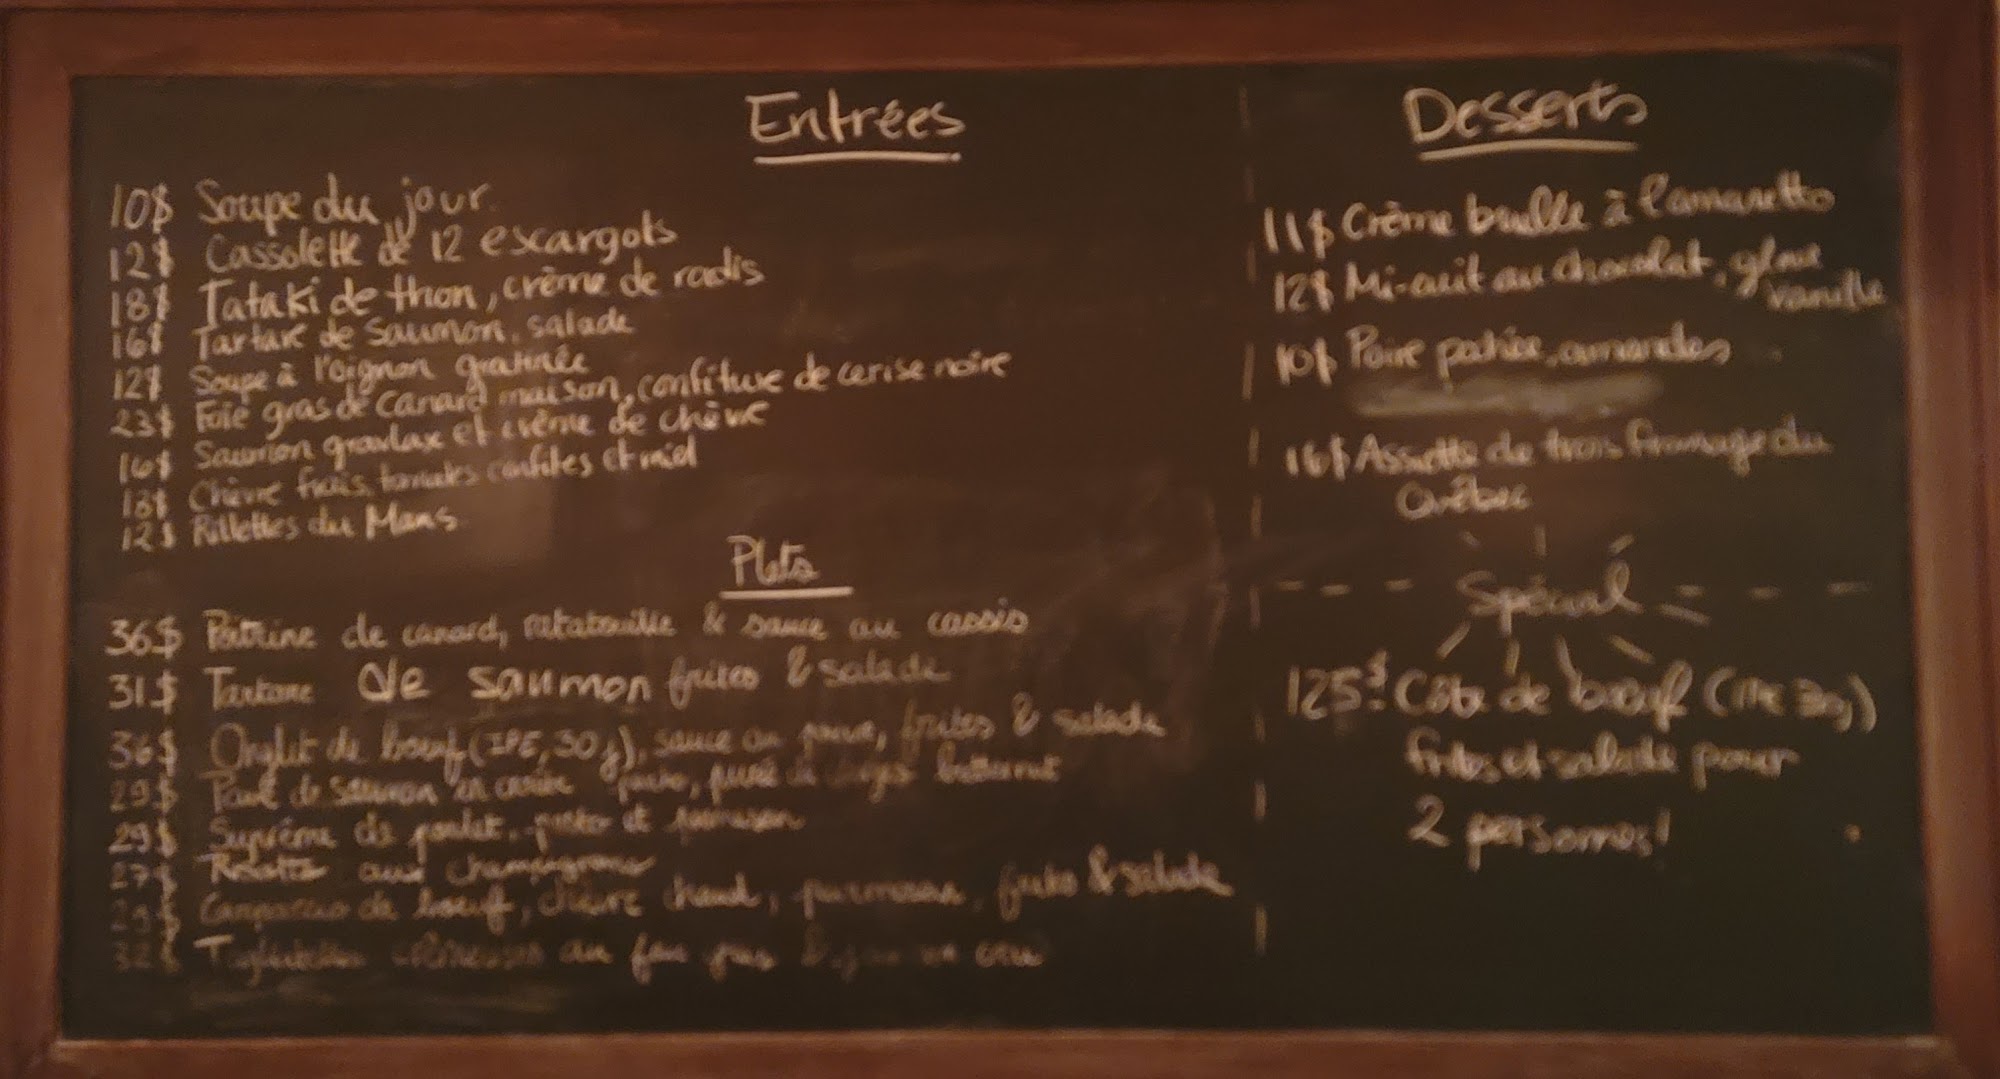 Entrées
10$ Soupe du jour
12$ Cassolette de 12 escargots
18$ Tataki de thon, crème de radis
16$ Tartare de saumon, salade
12$ Soupe à l'oignon gratinée
23$ Foie gras de canard maison, confiture de cerise noire
16$ Saumon gravlax et crème de chèvre
13$ Chèvre frais, tomates confites et miel
12$ Rillettes du Mans
Plats
36$ Poitrine de canard, ratatouille & sauce au cassis
31$ Tartare de saumon frites & salade
36$ Onglet de boeuf (IPE, 30j), sauce au poivre, frites & salade
29$ Pavé de saumon en croûte purée de butternut
29$ Suprême de poulet, pesto et parmesan
27$ Risotto aux champignons
Carpaccio de boeuf, chèvre chaud, parmesan, frites & salade
32$ Tagliatelles crémeuses au foie gras
Desserts
11$ Crème brulle à l'amaretto
12$ Mi-cuit au chocolat, glace
vanille
10$ Poire pochée, amandes
16$ Assiette de trois fromage du
Québec
Spécial
125$ Côte de boeuf (IPE 30j)
frites et salade pour
2 personnes!